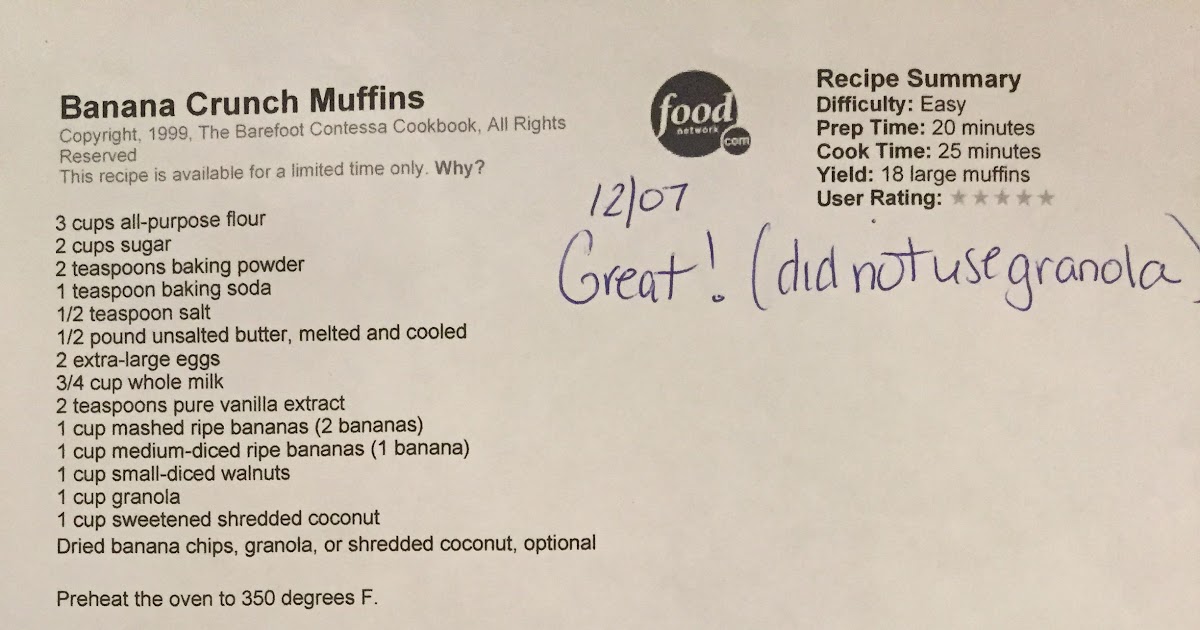 Banana Crunch Muffins
Copyright, 1999, The Barefoot Contessa Cookbook, All Rights
Reserved
This recipe is available for a limited time only. Why?
food
network
com
Recipe Summary
Difficulty: Easy
Prep Time: 20 minutes
Cook Time: 25 minutes
Yield: 18 large muffins
User Rating: ★★★★★
12/07
Great! (did not use granola)
3 cups all-purpose flour
2 cups sugar
2 teaspoons baking powder
1 teaspoon baking soda
1/2 teaspoon salt
1/2 pound unsalted butter, melted and cooled
2 extra-large eggs
3/4 cup whole milk
2 teaspoons pure vanilla extract
1 cup mashed ripe bananas (2 bananas)
1 cup medium-diced ripe bananas (1 banana)
1 cup small-diced walnuts
1 cup granola
1 cup sweetened shredded coconut
Dried banana chips, granola, or shredded coconut, optional
Preheat the oven to 350 degrees F.